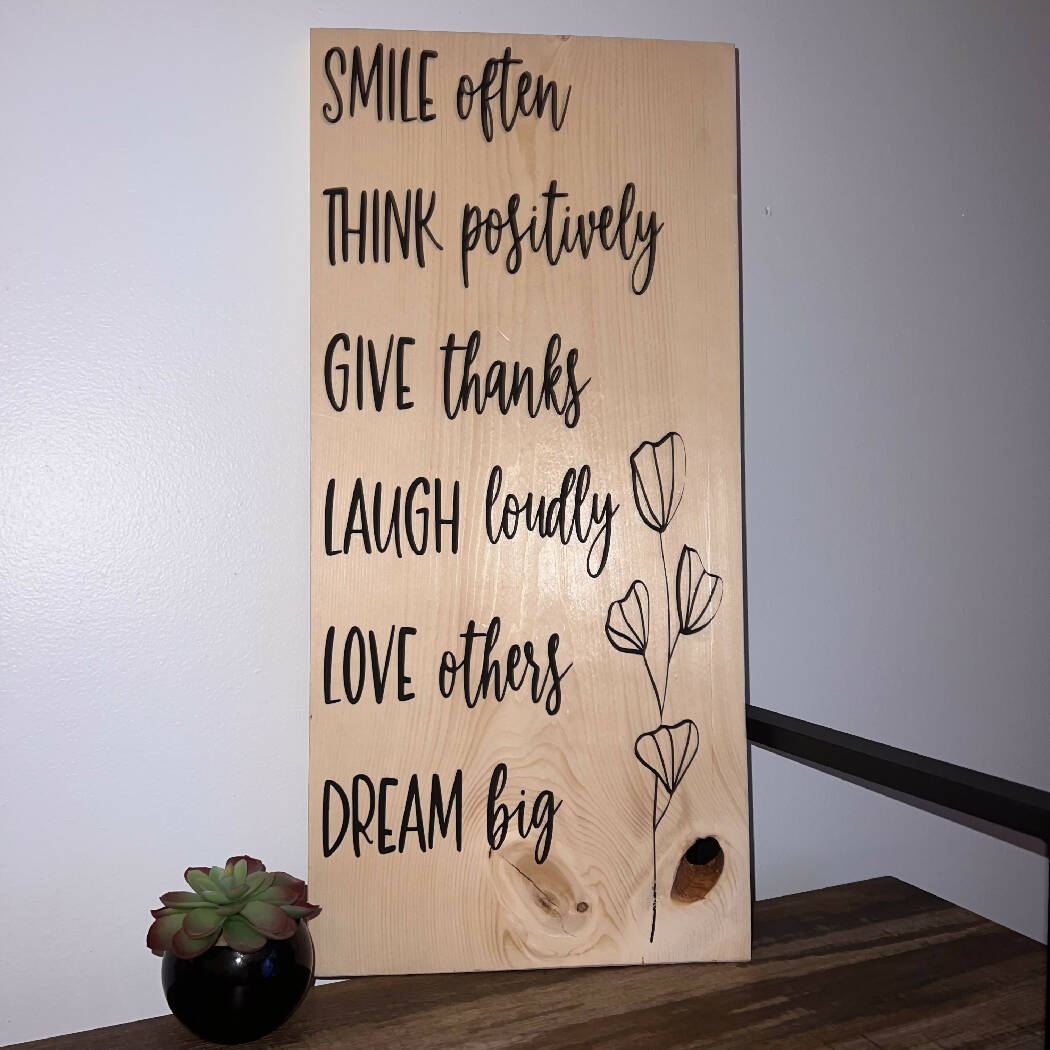 SMILE often
THINK positively
GIVE thanks
LAUGH loudly
LOVE others
DREAM big